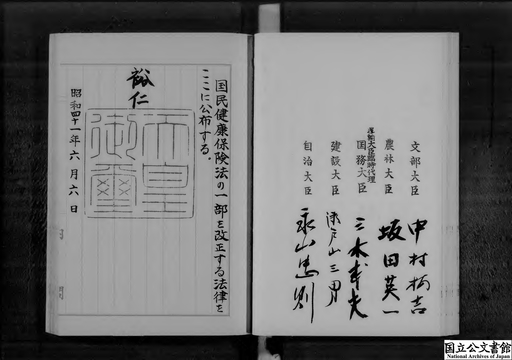 文部大臣 中村梅吉
農林大臣 坂田英一
運輸大臣臨時代理
国務大臣 三木武夫
建設大臣 瀬戸山三男
自治大臣 永山忠則
国民健康保険法の一部を改正する法律を
ここに公布する。
裕仁
天皇
御璽
昭和四十一年六月六日
国立公文書館
National Archives of Japan